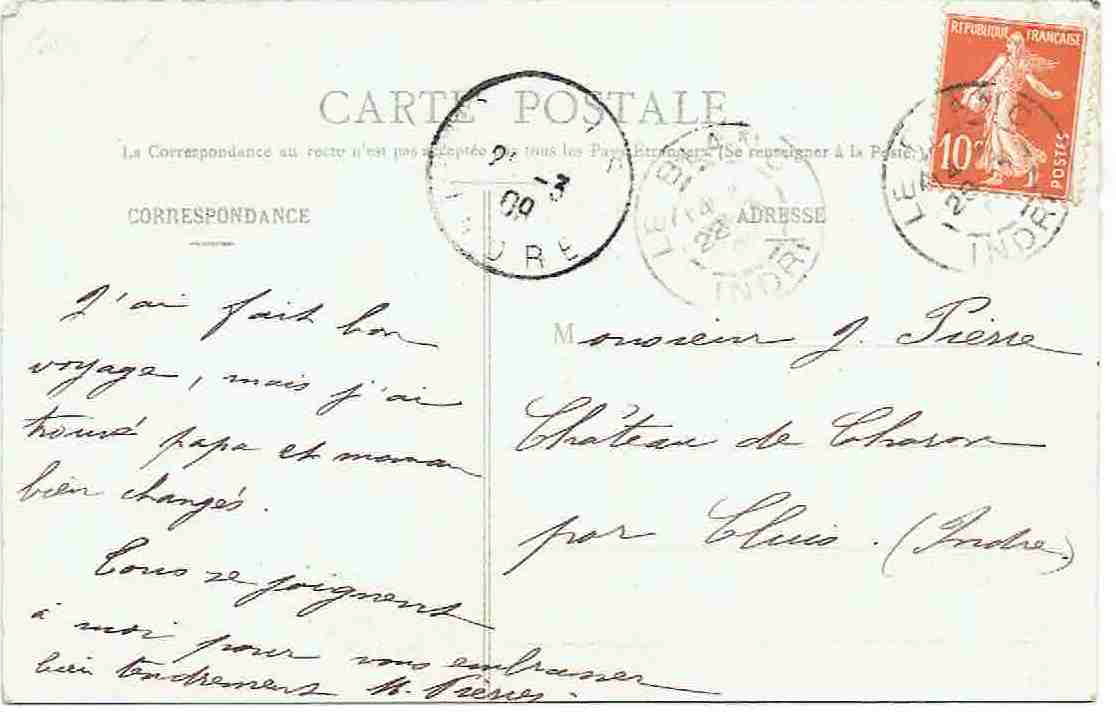 CARTE POSTALE
La Correspondance au recto n'est pas acceptée par tous les Pays Etrangers. (Se renseigner à la Poste.)
REPUBLIQUE FRANÇAISE
10c POSTES
3 09
INDRE
LE BLANC
22
INDRE
LE BLANC
22
INDRE
CORRESPONDANCE
ADRESSE
J'ai fait bon
voyage, mais j'ai
trouvé papa et maman
bien changés.
Tous se joignent
à moi pour vous embrasser
bien tendrement M. Pierre.
Monsieur J. Pierre
Château de Charon
par Cluis. (Indre)